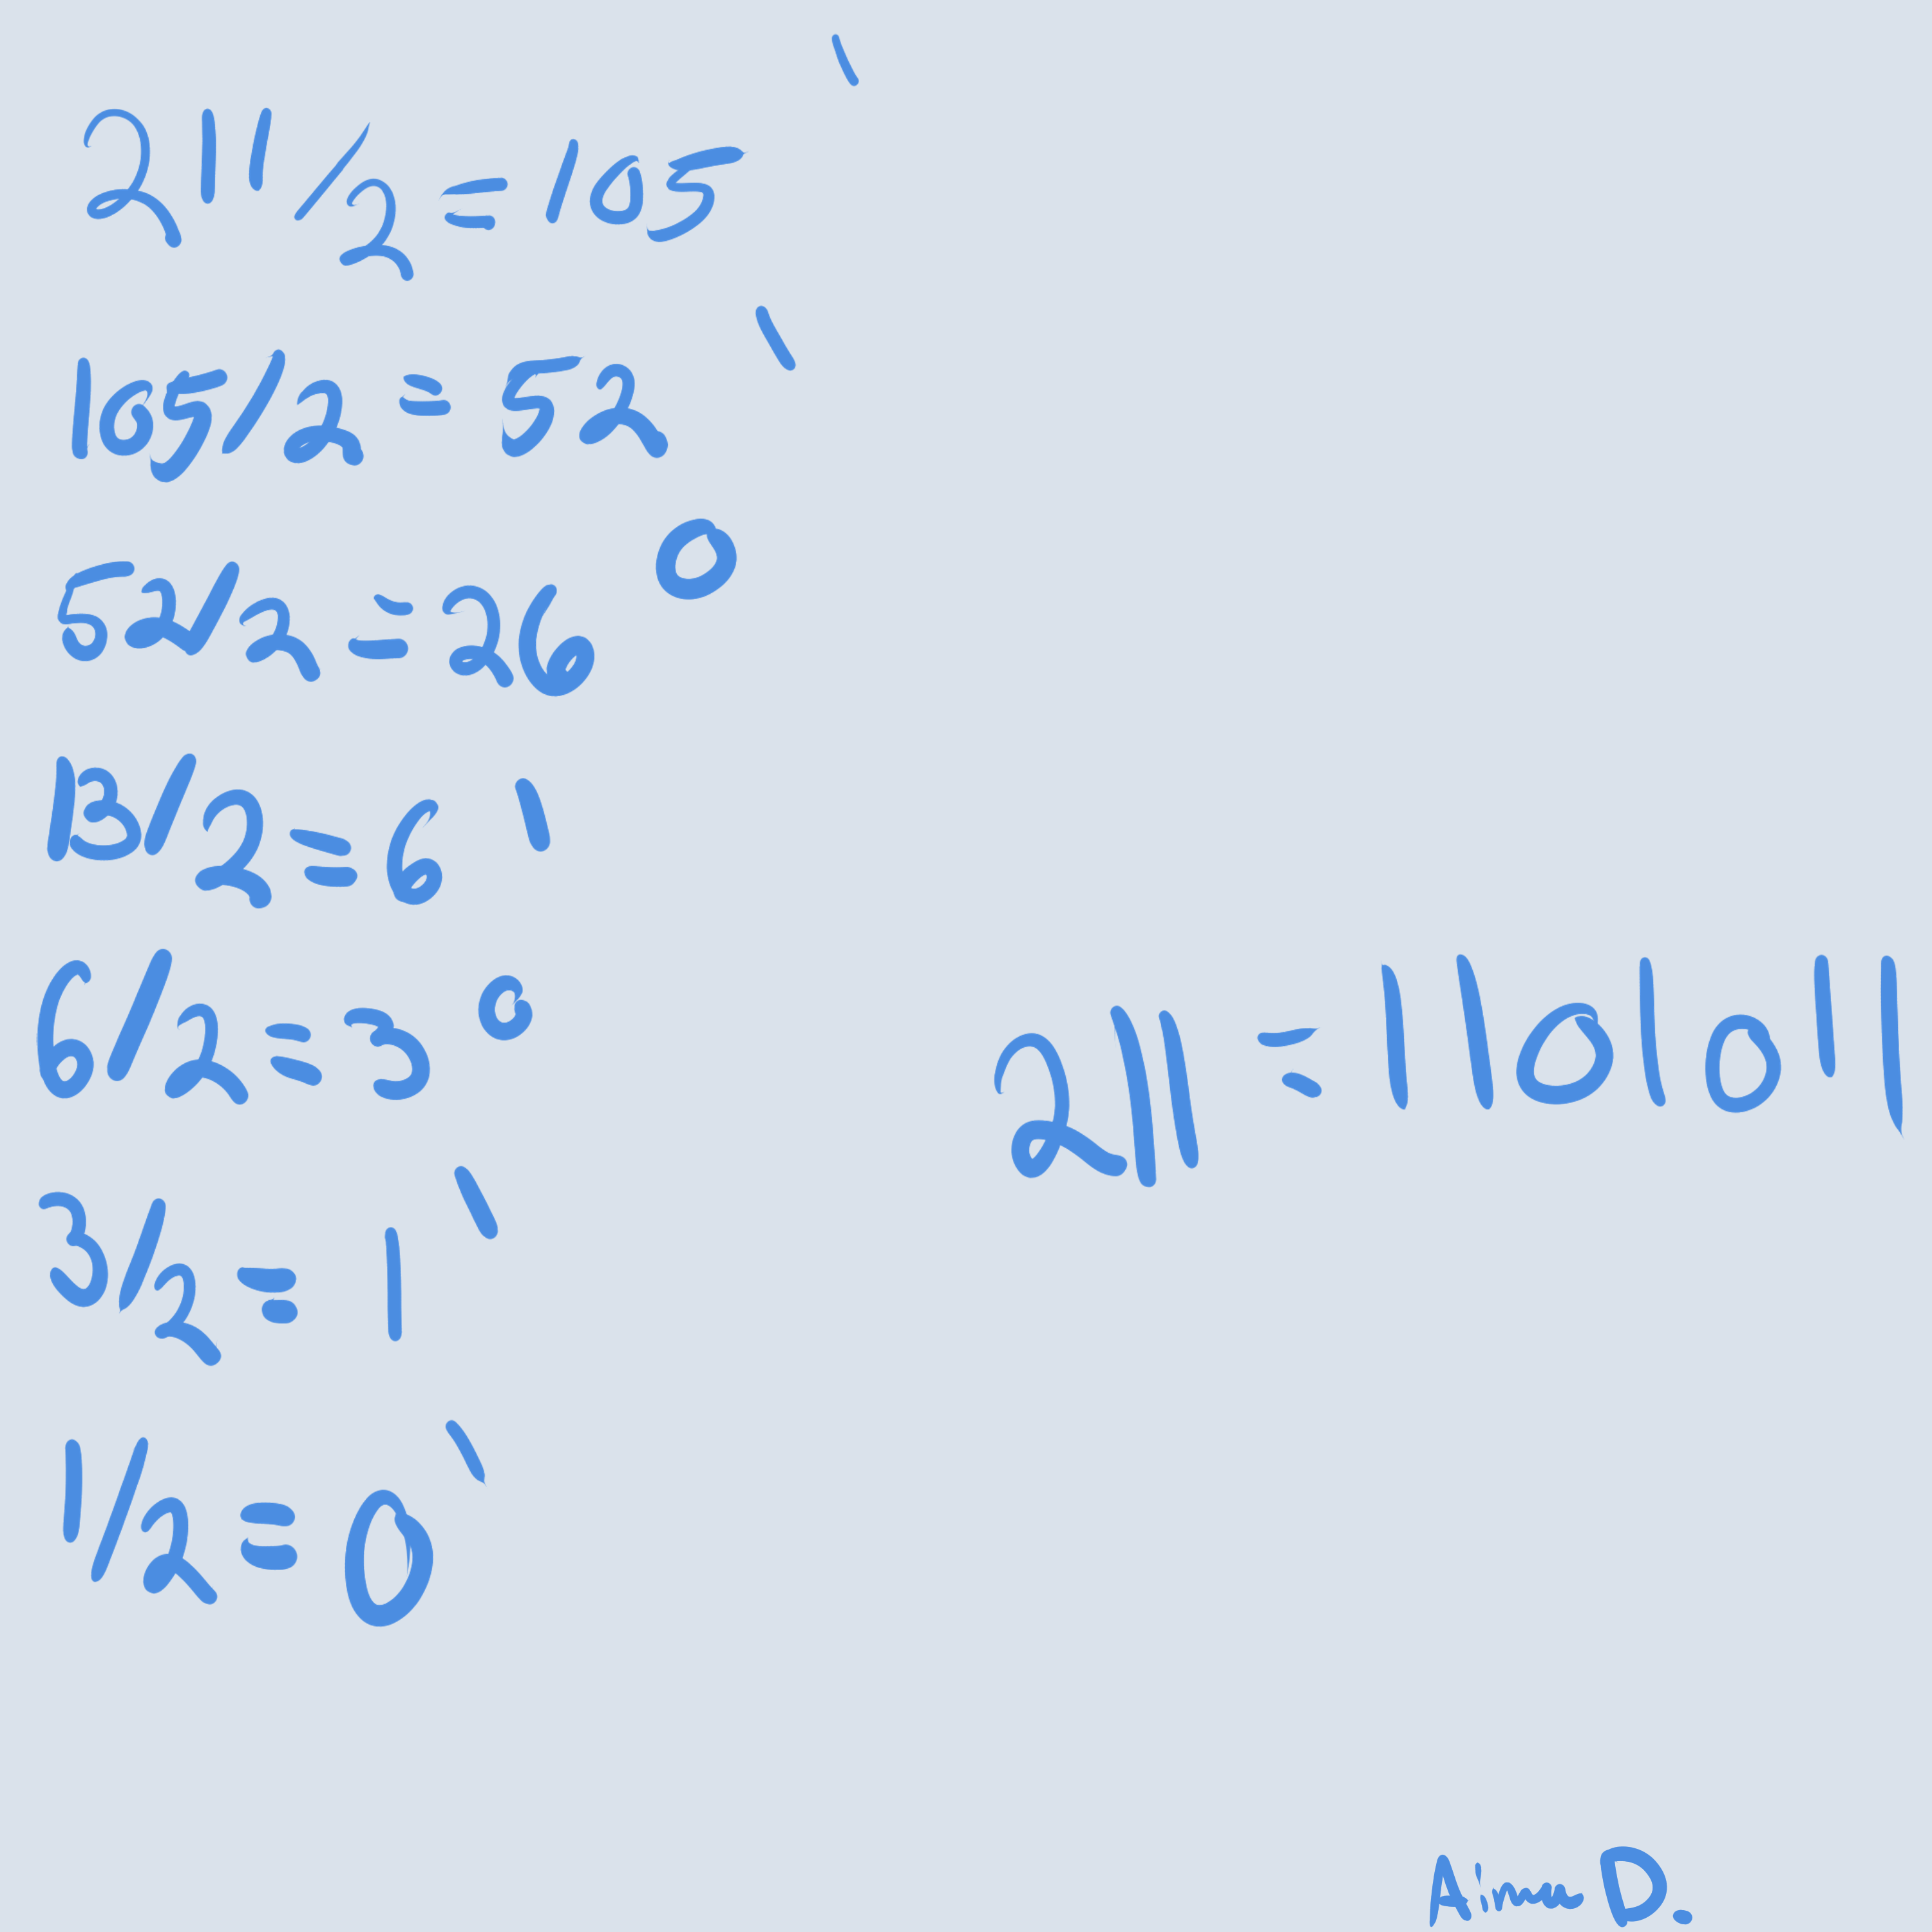 211/2 = 105 1
105/2 = 52 1
52/2 = 26 0
13/2 = 6 1
6/2 = 3 0
3/2 = 1 1
1/2 = 0 1
211 = 1101011
D.